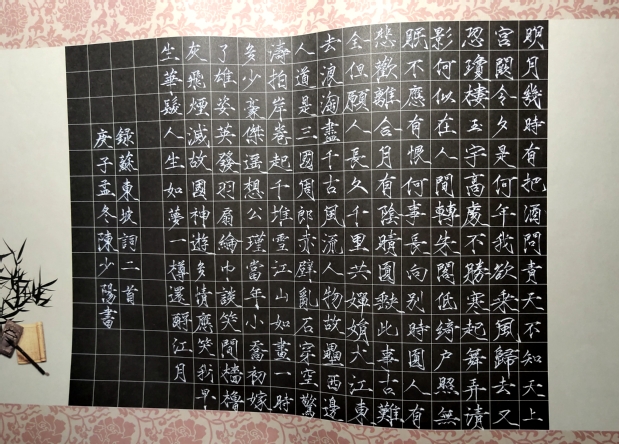 明月幾時有把酒問青天不知天上
宮闕今夕是何年我欲乘風歸去又
恐瓊樓玉宇高處不勝寒起舞弄清
影何似在人間轉朱閣低綺戶照無
眠不應有恨何事長向別時圓人有
悲歡離合月有陰晴圓缺此事古難
全但願人長久千里共嬋娟大江東
去浪淘盡千古風流人物故壘西邊
人道是三國周郎赤壁亂石穿空驚
濤拍岸卷起千堆雪江山如畫一時
多少豪傑遙想公瑾當年小喬初嫁
了雄姿英發羽扇綸巾談笑間檣櫓
灰飛煙滅故國神遊多情應笑我早
生華髮人生如夢一樽還酹江月
錄蘇東坡詞二首
庚子孟冬陳少陽書